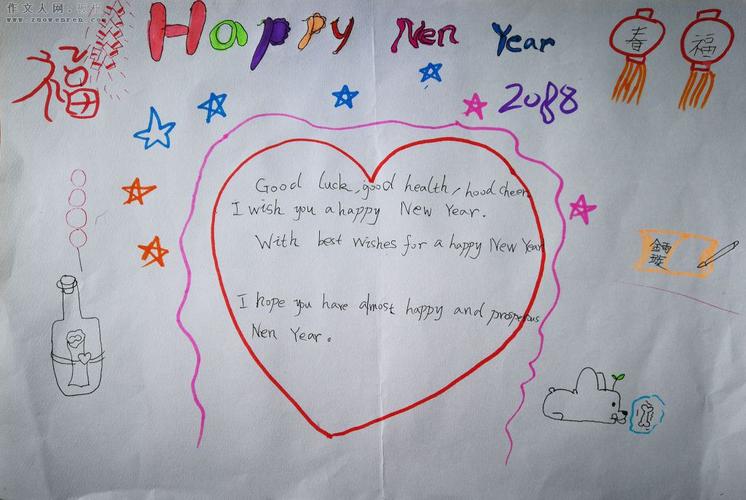 作文人网
www.zuowenren.com
Happy Nen Year
春 福
福
2088
Good luck, good health, hood cheer,
I wish you a happy New Year.
With best wishes for a happy New Year
I hope you have almost happy and prosperous
Nen Year.
金雨
璇